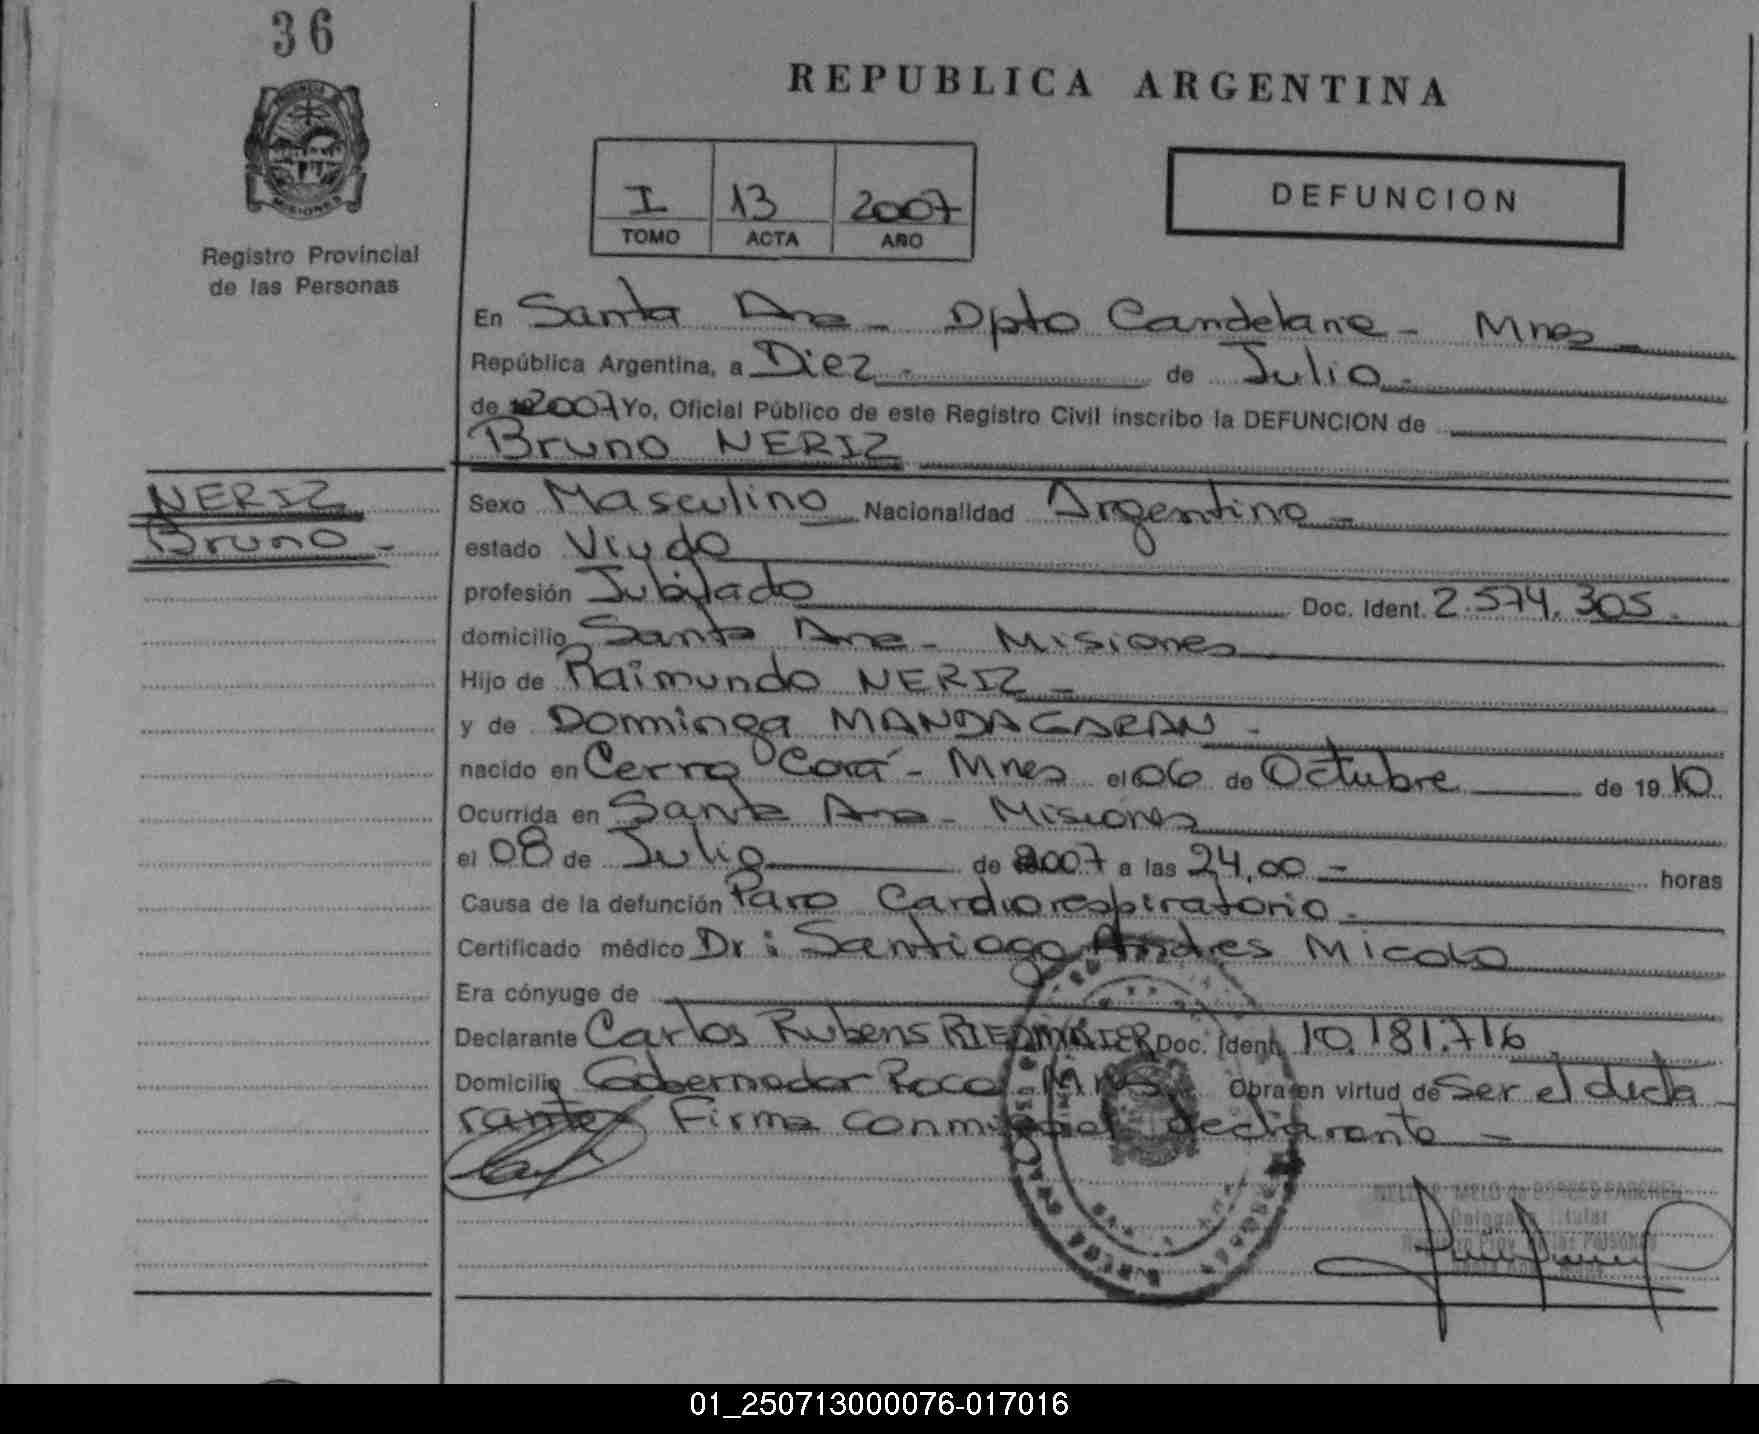 36
REPUBLICA ARGENTINA
MISIONES
Registro Provincial
de las Personas
I 13 2007
TOMO ACTA AÑO
DEFUNCION
En Santa Ana - Dpto Candelaria - Mnes
República Argentina, a Diez - de Julio -
de 2007 Yo, Oficial Público de este Registro Civil inscribo la DEFUNCION de
Bruno NERIZ
NERIZ
Bruno -
Sexo Masculino Nacionalidad Argentino -
estado Viudo
profesión Jubilado Doc. Ident. 2.574.305.
domicilio Santa Ana - Misiones
Hijo de Raimundo NERIZ -
y de Dominga MANDAGARAN -
nacido en Cerro Corá - Mnes el 06 de Octubre de 19 10
Ocurrida en Santa Ana - Misiones
el 08 de Julio de 2007 a las 24,00 - horas
Causa de la defunción Paro Cardiorespiratorio -
Certificado médico Dr: Santiago Andres Micolo
Era cónyuge de
Declarante Carlos Rubens RIEDMAIER Doc. Ident. 10.181.716
Domicilio Gobernador Roca - Mnes Obra en virtud de ser el decla
rante Firma conmigo el declarante -
01_250713000076-017016